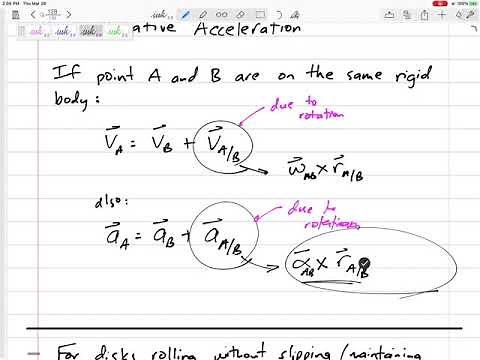 2:05 PM Thu Mar 26
ative Acceleration
If point A and B are on the same rigid
body:
due to
rotation
V⃗A = V⃗B + V⃗A/B
ω⃗AB × r⃗A/B
also:
due to
rotation
a⃗A = a⃗B + a⃗A/B
α⃗AB × r⃗A/B
For disks rolling without slipping/maintaining